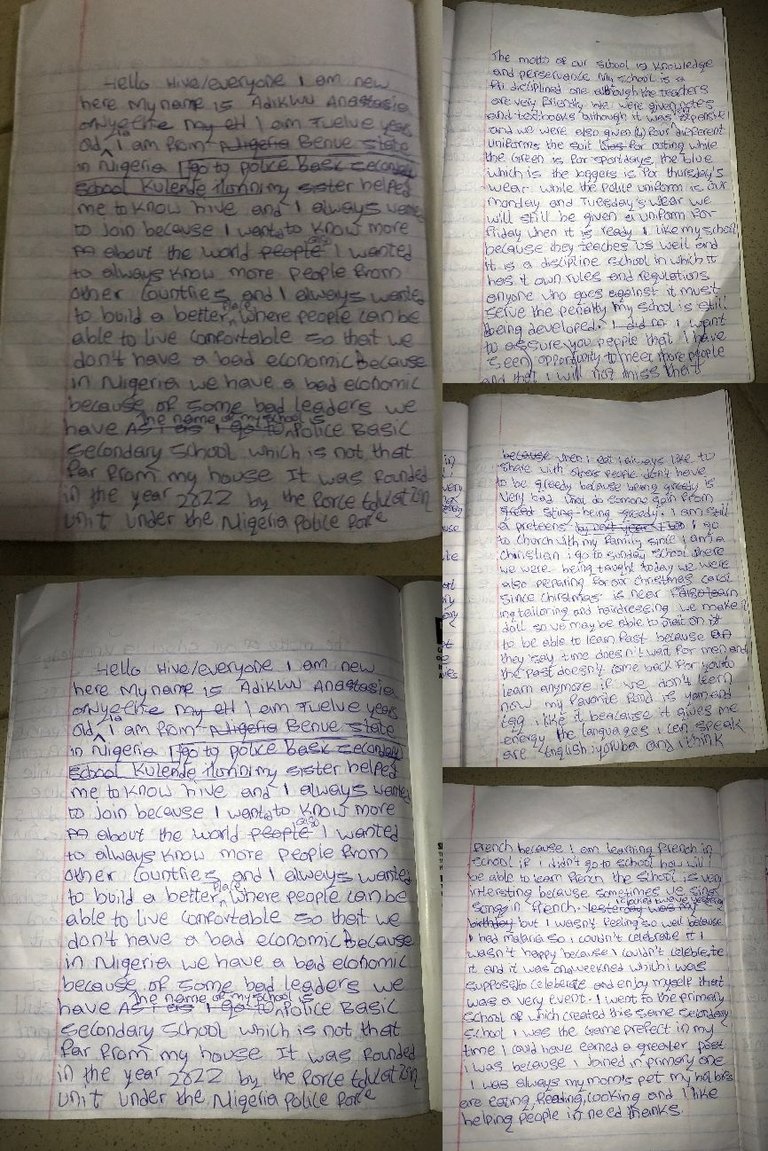 Hello Hive/everyone I am new
here My name is Adikwu Anastasia
onyeche my eh I am Twelve years
old, I am from Nigeria Benue state
in Nigeria I go to police Basic secondary
school Kulende Ilorin my sister helped
me to know hive and I always wanted
to join because I want to know more
about the world people also I wanted
to always know more people from
other countries and I always wanted
to build a better place where people can be
able to live comfortable so that we
don't have a bad economic because
in Nigeria we have a bad economic
because of some bad leaders we
The name of my school is
have As I go to Police Basic
secondary School which is not that
far from my house It was founded
in the year 2022 by the Force Education
unit under the Nigeria Police Force
The motto of our school is knowledge
and perservance my school is a
disciplined one although the teachers
are very friendly we were given notes
and textbooks although it was expensive
and we were also given (4) four different
uniforms the suit is for outing while
the Green is for sportdays, the blue
which is the biggers is for thursday's
wear while the Police uniform is our
monday and Tuesday's wear we
will still be given a uniform for
friday when it is ready I like my school
because they teaches us well and
it is a discipline school in which it
has it own rules and regulations
anyone who goes against it must
serve the penalty my school is still
being developed. I did n I want
to assure you people that I have
seen opportunity to meet more people
and that I will not miss that
Hello Hive/everyone I am new
here My name is Adikwu Anastasia
onyeche my eh I am Twelve years
old, I am from Nigeria Benue state
in Nigeria I go to police Basic secondary
school Kulende Ilorin my sister helped
me to know hive and I always wanted
to join because I want to know more
about the world people also I wanted
to always know more people from
other countries and I always wanted
to build a better place where people can be
able to live comfortable so that we
don't have a bad economic because
in Nigeria we have a bad economic
because of some bad leaders we
The name of my school is
have As I go to Police Basic
secondary School which is not that
far from my house It was founded
in the year 2022 by the Force Education
unit under the Nigeria Police Force
because when i eat i always like to
share with others people don't have
to be greedy because being greedy is
very bad what do someone gain from
being greedy. I am still
a preteens I go
to church with my family since I am a
Christian i go to sunday school where
we were being taught today we were
also preparing for our christmas carol
since christmas is near I also learn
ing tailoring and hairdressing we make it
doll so we may be able to on it
to be able to learn fast because
they say time doesn't wait for men and
the past doesn't come back for you to
learn anymore if we don't learn
now my favorite food is yam and
egg i like it because it gives me
energy the languages i can speak
are English, yoruba and i think
french because I am learning french in
school if i didn't go to school how will i
be able to learn french the school is very
interesting because sometimes we sing
songs in french. Yesterday was my
birthday but I wasn't feeling so well because
I had malaria so i couldn't celebrate it I
wasn't happy because I couldn't celebrate
it and it was on weekned which i was
suppos to celebrate and enjoy myself that
was a very event. I went to the primary
school of which created this same secondary
school I was the Game prefect in my
time I could have earned a greater post
I was because I joined in primary one
I was always my mom's pet my hobbies
are eating, Reading, cooking and I like
helping people in need thanks.